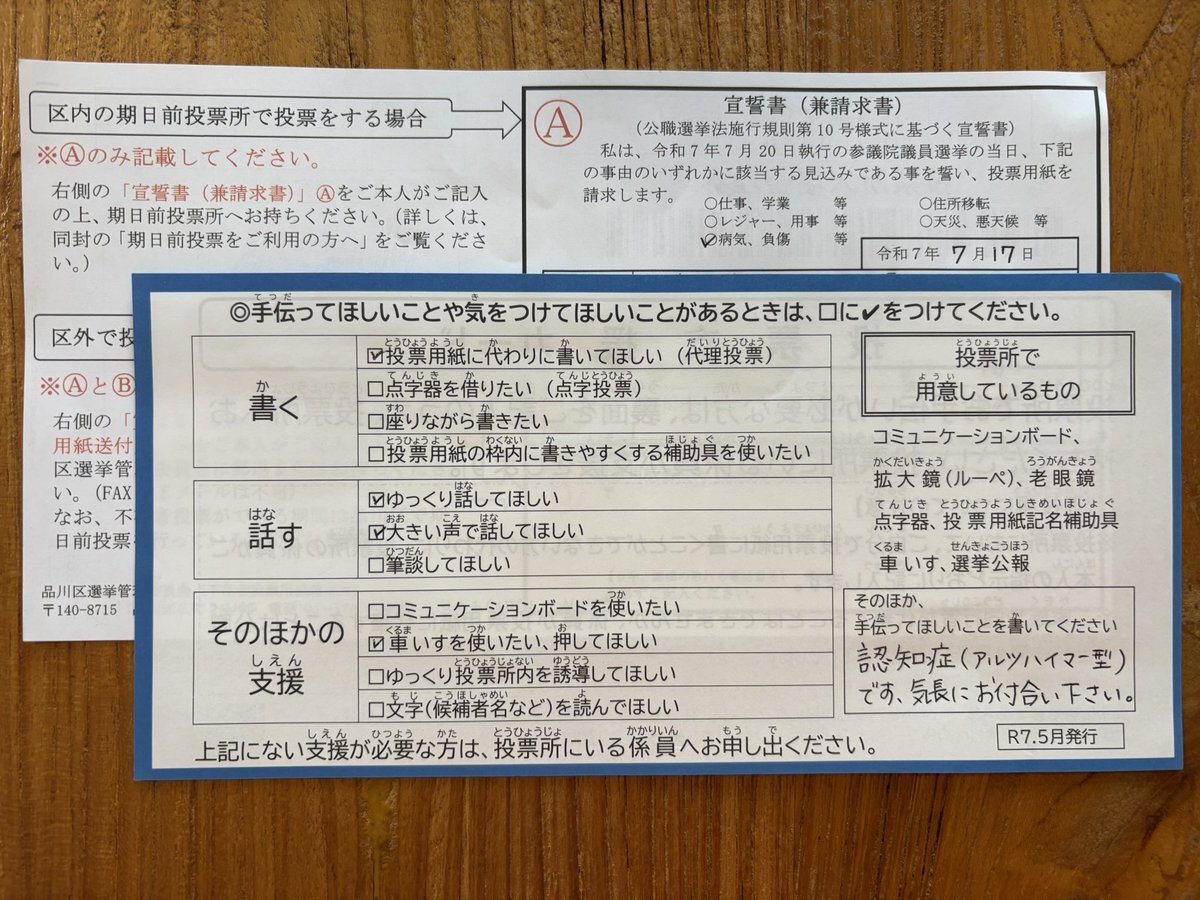 区内の期日前投票所で投票をする場合
※Ⓐのみ記載してください。
右側の「宣誓書（兼請求書）」Ⓐをご本人がご記入
の上、期日前投票所へお持ちください。（詳しくは、
同封の「期日前投票をご利用の方へ」をご覧くださ
い。）
区外で投
※ⒶとⒷ
右側の「
用紙送付
区選挙管
い。（FAX
なお、不
日前投票
品川区選挙管理
〒140-8715
Ⓐ
宣誓書（兼請求書）
（公職選挙法施行規則第10号様式に基づく宣誓書）
私は、令和7年7月20日執行の参議院議員選挙の当日、下記
の事由のいずれかに該当する見込みである事を誓い、投票用紙を
請求します。
○仕事、学業 等 ○住所移転
○レジャー、用事 等 ○天災、悪天候 等
○病気、負傷 等
令和7年 7月17日
◎手伝ってほしいことや気をつけてほしいことがあるときは、□に✔をつけてください。
書く
☑投票用紙に代わりに書いてほしい（代理投票）
□点字器を借りたい（点字投票）
□座りながら書きたい
□投票用紙の枠内に書きやすくする補助具を使いたい
話す
☑ゆっくり話してほしい
☑大きい声で話してほしい
□筆談してほしい
そのほかの
支援
□コミュニケーションボードを使いたい
☑車いすを使いたい、押してほしい
□ゆっくり投票所内を誘導してほしい
□文字（候補者名など）を読んでほしい
投票所で
用意しているもの
コミュニケーションボード、
拡大鏡（ルーペ）、老眼鏡
点字器、投票用紙記名補助具
車いす、選挙公報
そのほか、
手伝ってほしいことを書いてください
認知症（アルツハイマー型）
です、気長にお付合い下さい。
上記にない支援が必要な方は、投票所にいる係員へお申し出ください。
R7.5月発行